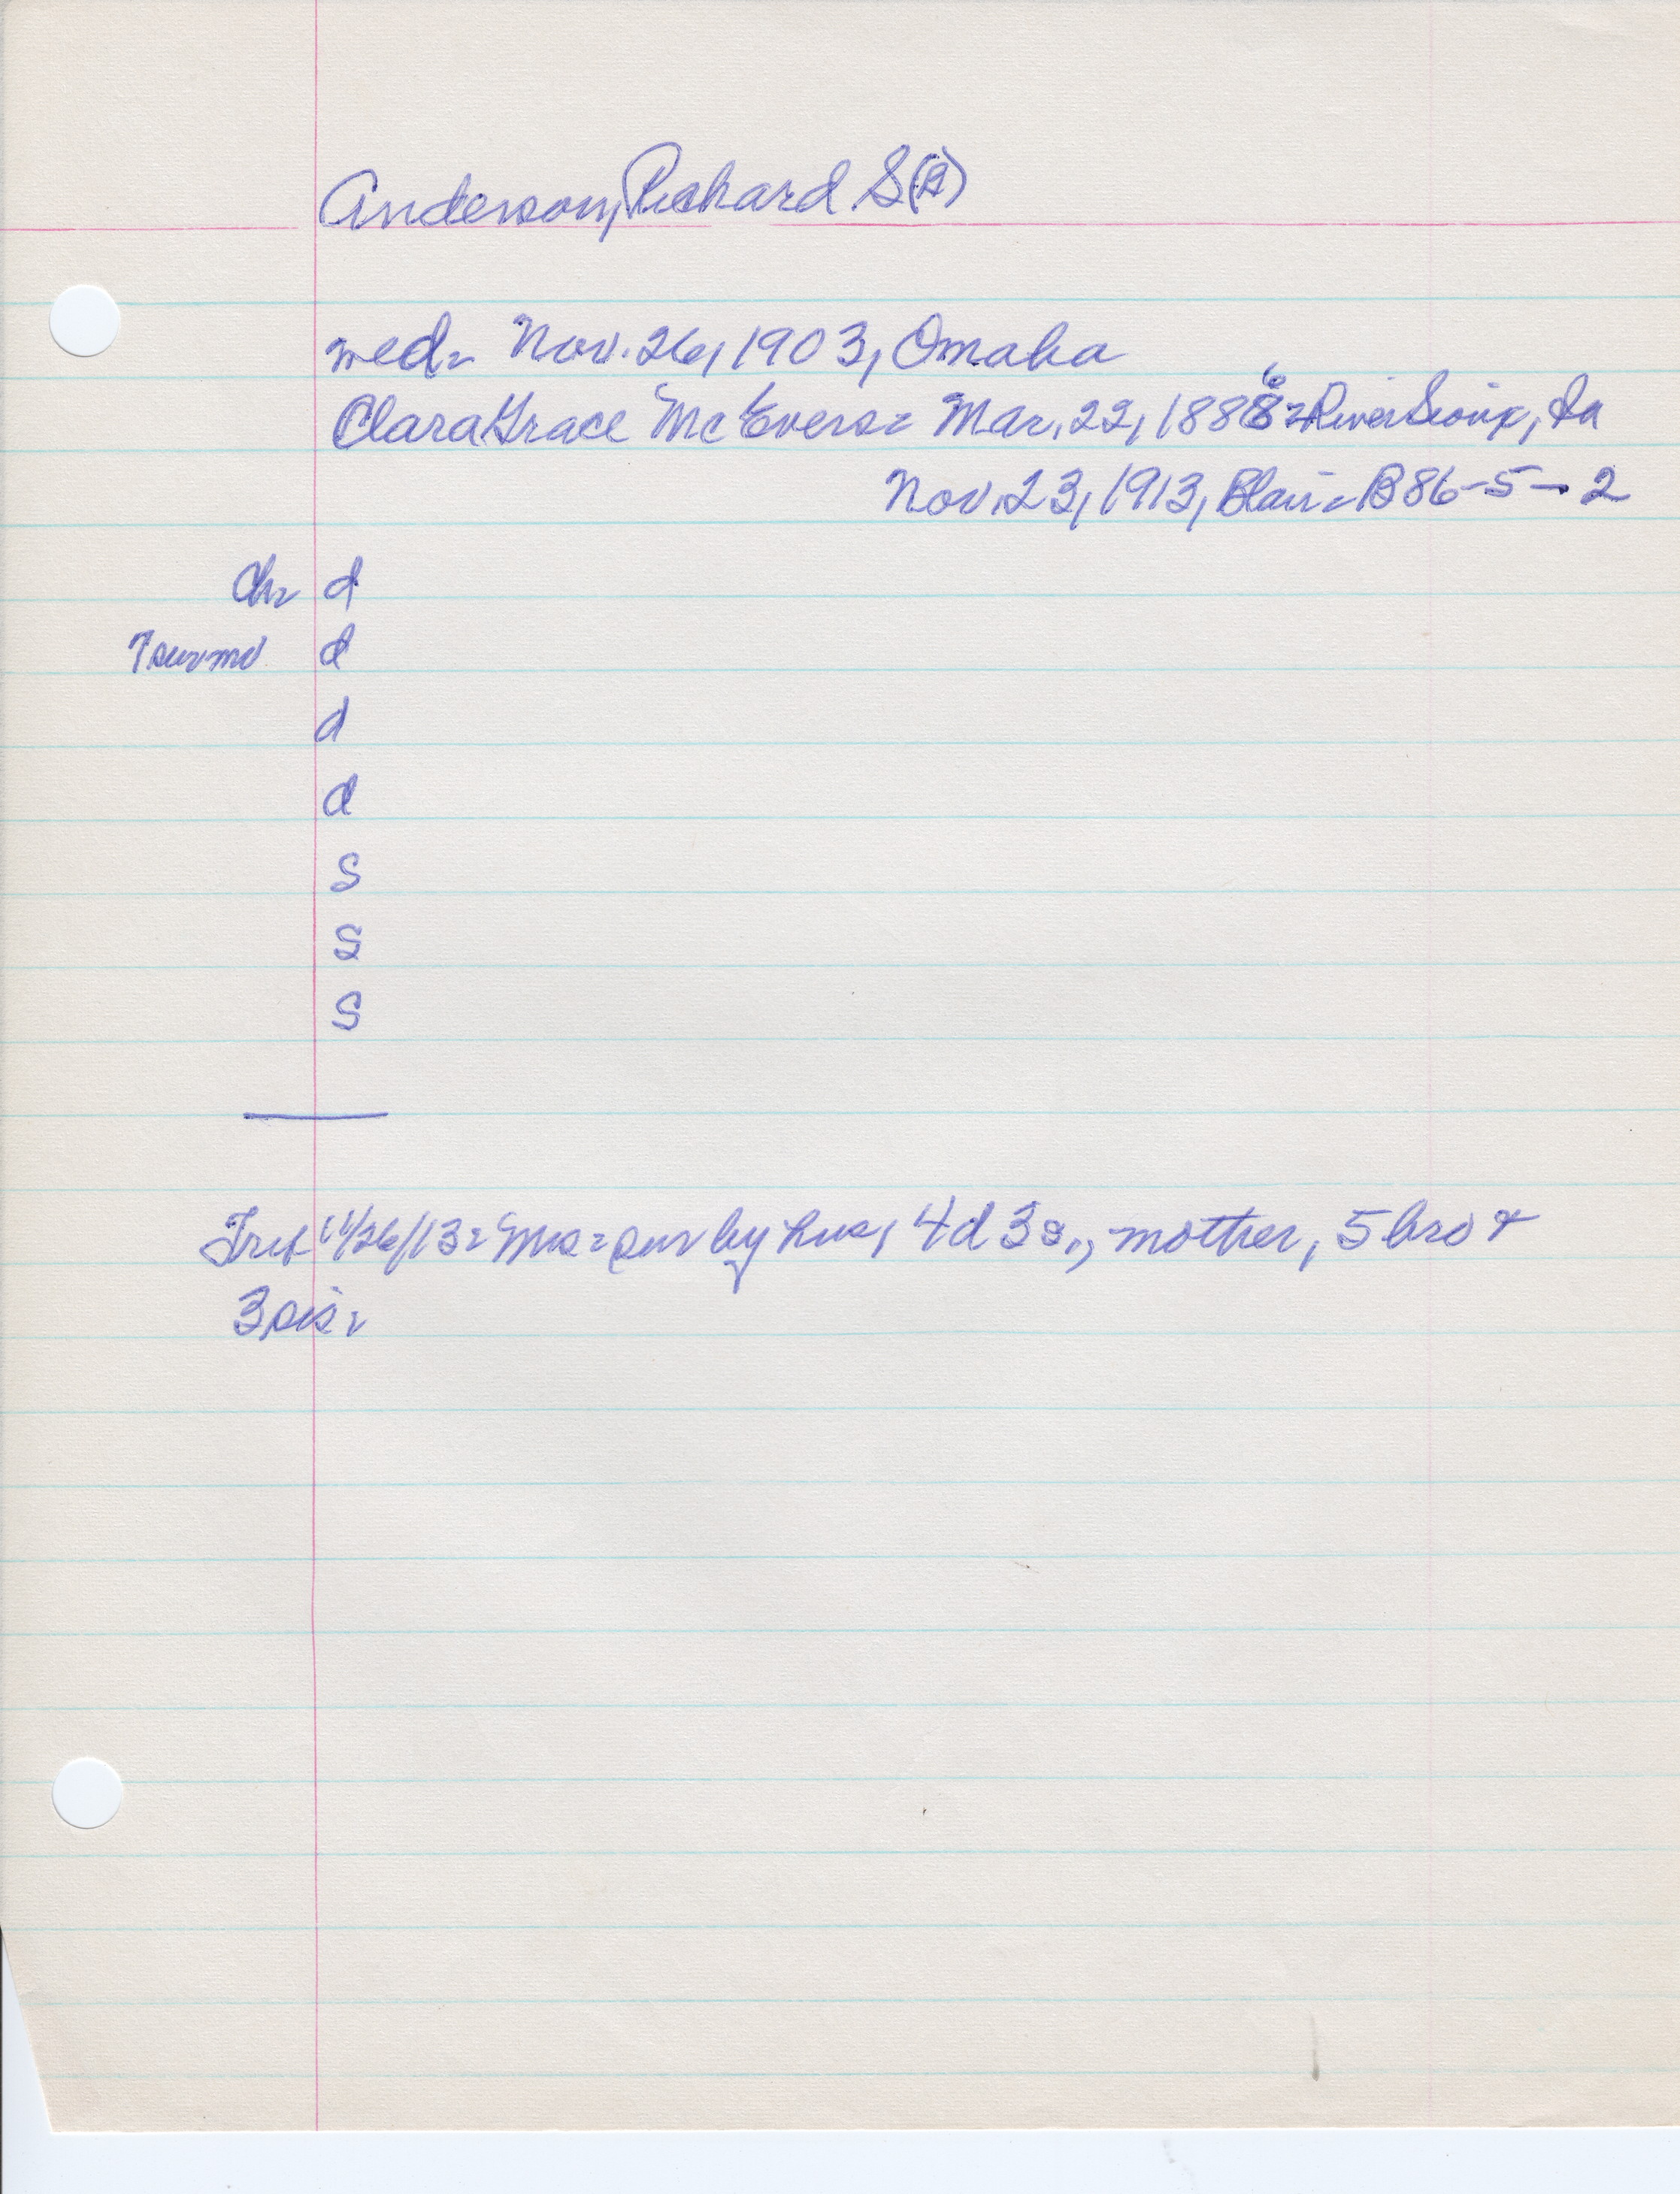 Anderson, Richard S(R)
wed- Nov. 26, 1903, Omaha
6
Clara Grace McEvers- Mar. 22, 1888-River Sioux, Ia
Nov. 23, 1913, Blair-B86-5-2
Ch- d
7 surmo d
d
d
s
s
s
Trib 11/26/13-Mrs-sur by hus, 4d 3s., mother, 5 bro &
3 sis-